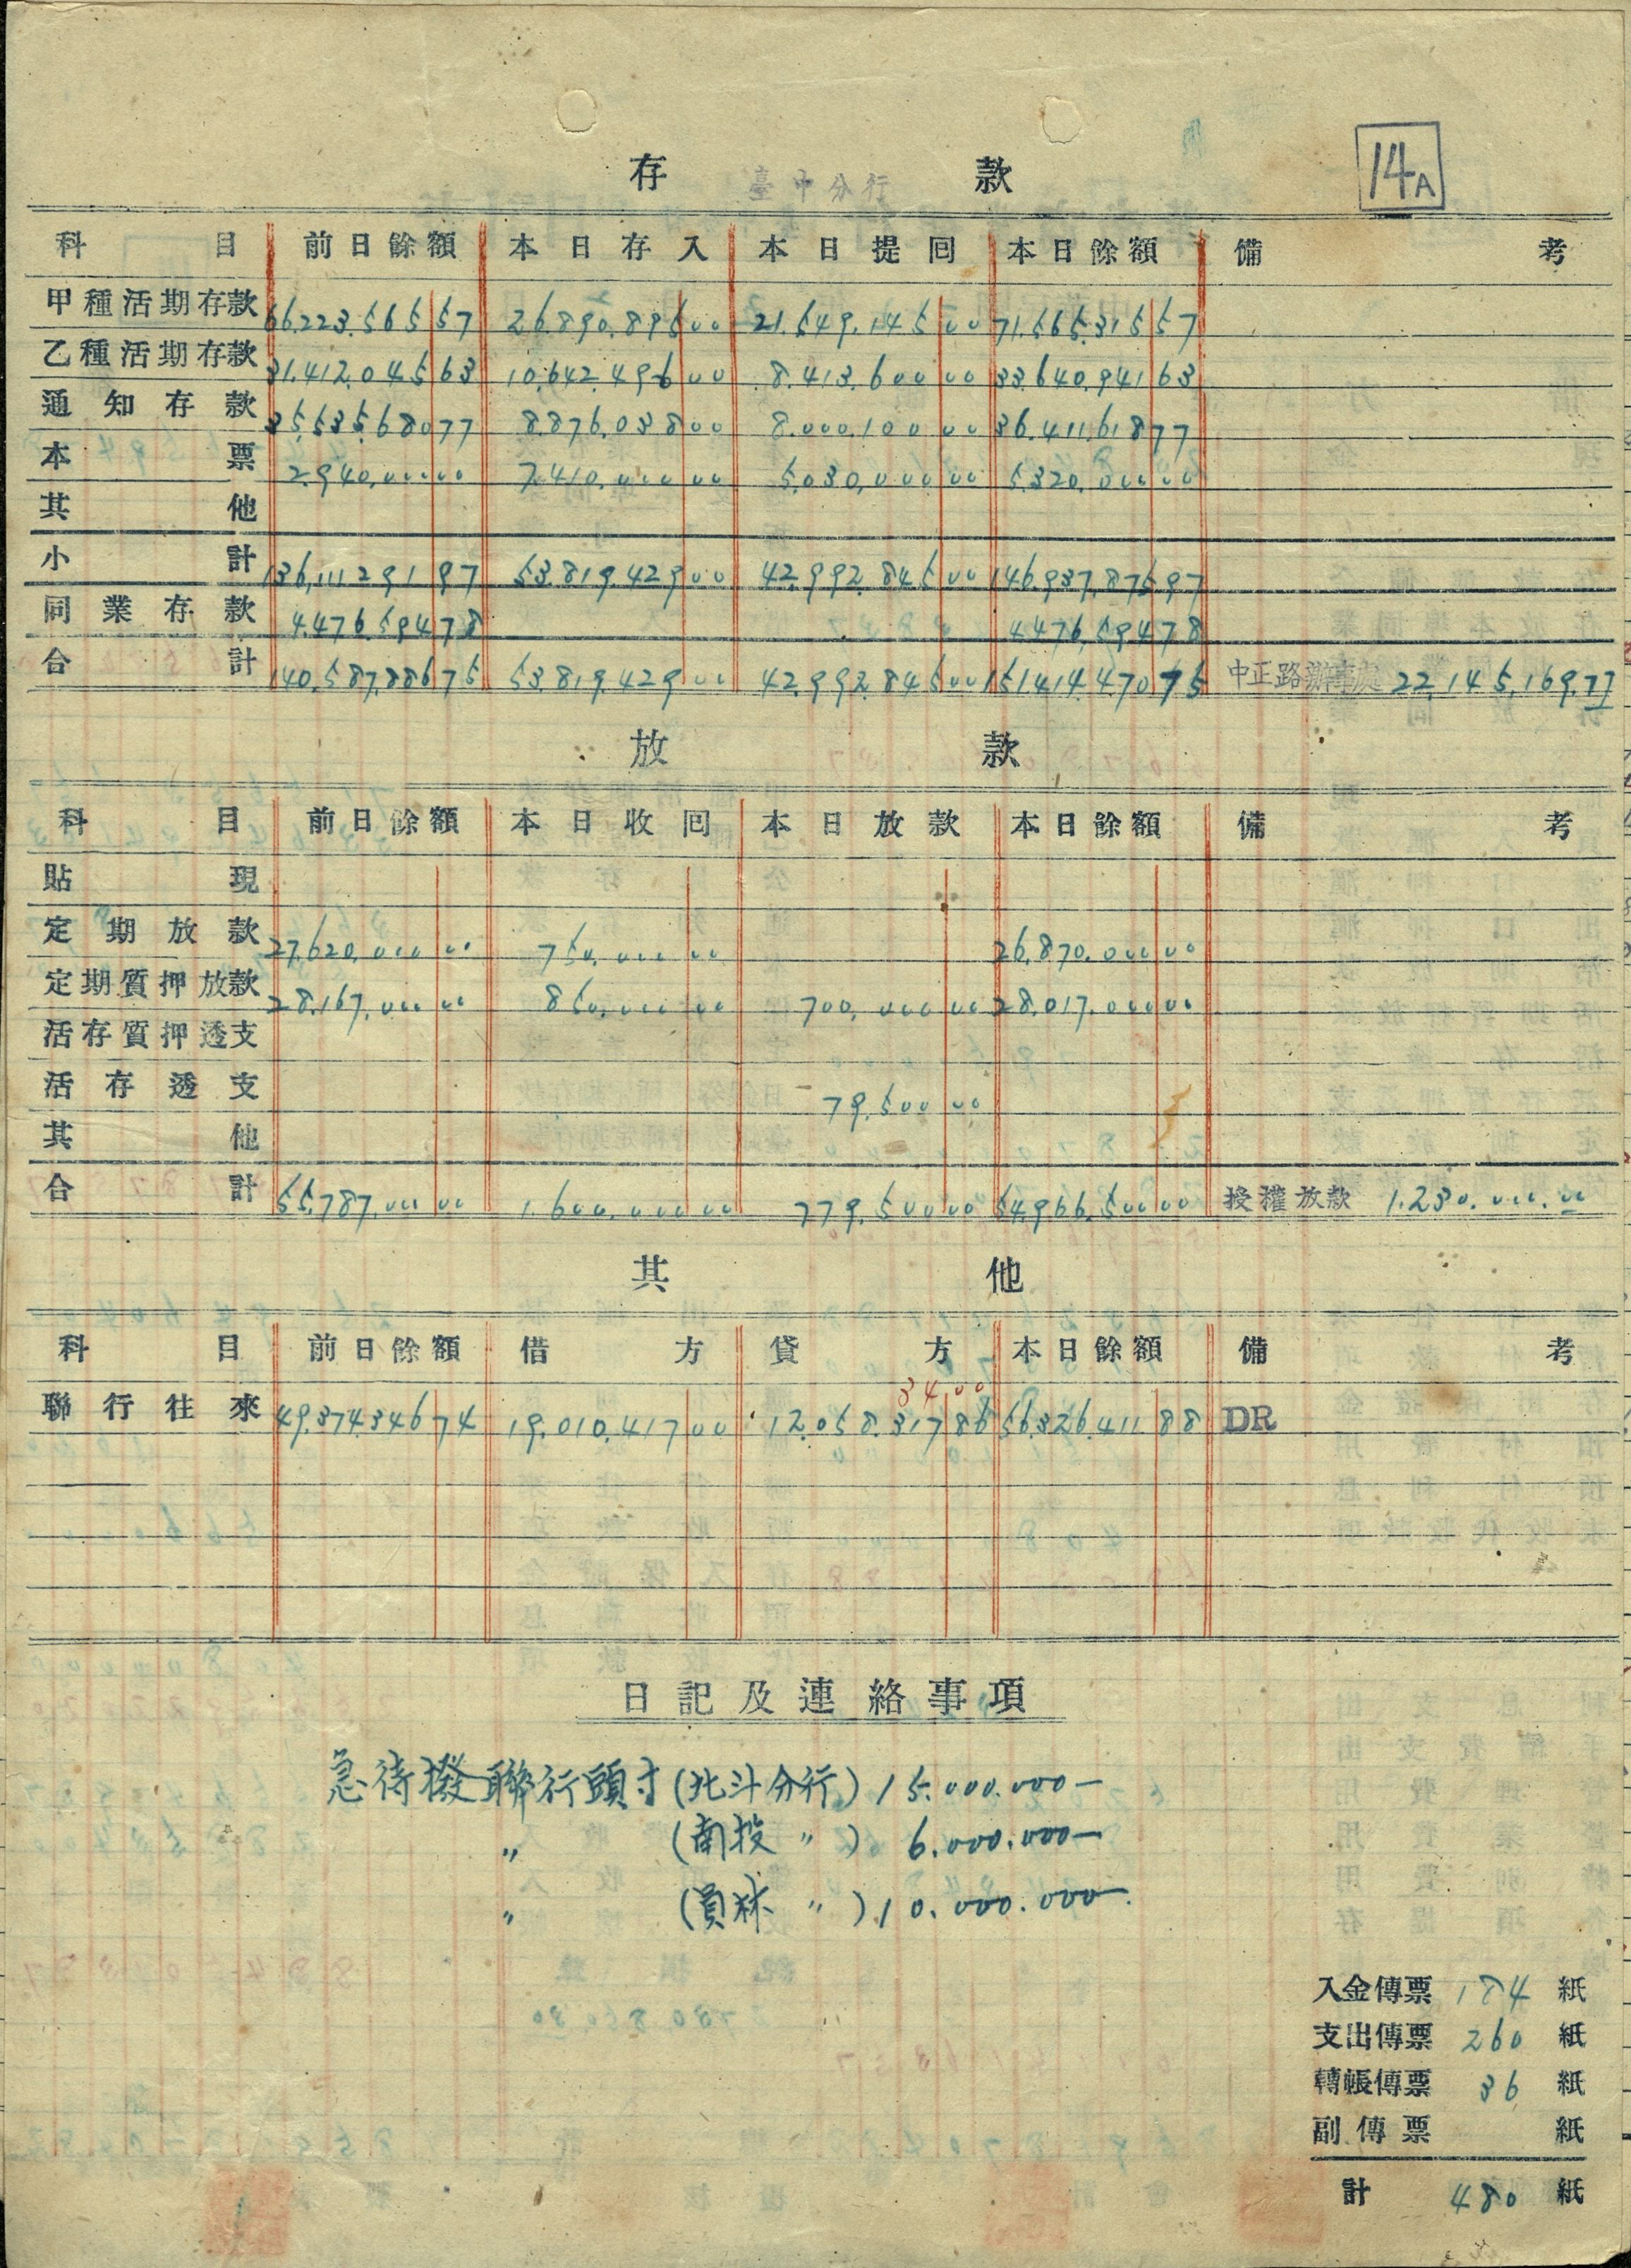 14A
存 臺中分行 款
科目 前日餘額 本日存入 本日提回 本日餘額 備考
甲種活期存款 66.223.565 57 26.890.895 00 21.549.145 00 71.565.315 57
乙種活期存款 31.412.045 63 10.642.496 00 8.413.600 00 33.640.941 63
通知存款 35.535.680 77 8.876.038 00 8.000.100 00 36.411.618 77
本票 2.940.000 00 7.410.000 00 5.030.000 00 5.320.000 00
其他
小計 136.111.291 97 53.819.429 00 42.992.845 00 146.937.875 97
同業存款 4.476.594 78 4.476.594 78
合計 140.587.886 75 53.819.429 00 42.992.845 00 151.414.470 75 中正路辦事處 22.145.169.77
放款
科目 前日餘額 本日收回 本日放款 本日餘額 備考
貼現
定期放款 27.620.000 00 750.000 00 26.870.000 00
定期質押放款 28.167.000 00 850.000 00 700.000 00 28.017.000 00
活存質押透支
活存透支 79.500 00
其他
合計 55.787.000 00 1.600.000 00 779.500 00 54.966.500 00 授權放款 1.230.000.00
其他
科目 前日餘額 借方 貸方 本日餘額 備考
34 00
聯行往來 49.374.346 74 19.010.417 00 12.058.317 86 56.326.411 88 DR
日記及連絡事項
急待撥聯行頭寸(北斗分行) 15.000.000—
〃 (南投 〃 ) 6.000.000—
〃 (員林 〃 ) 10.000.000—
入金傳票 184 紙
支出傳票 260 紙
轉帳傳票 36 紙
副傳票 紙
計 480 紙